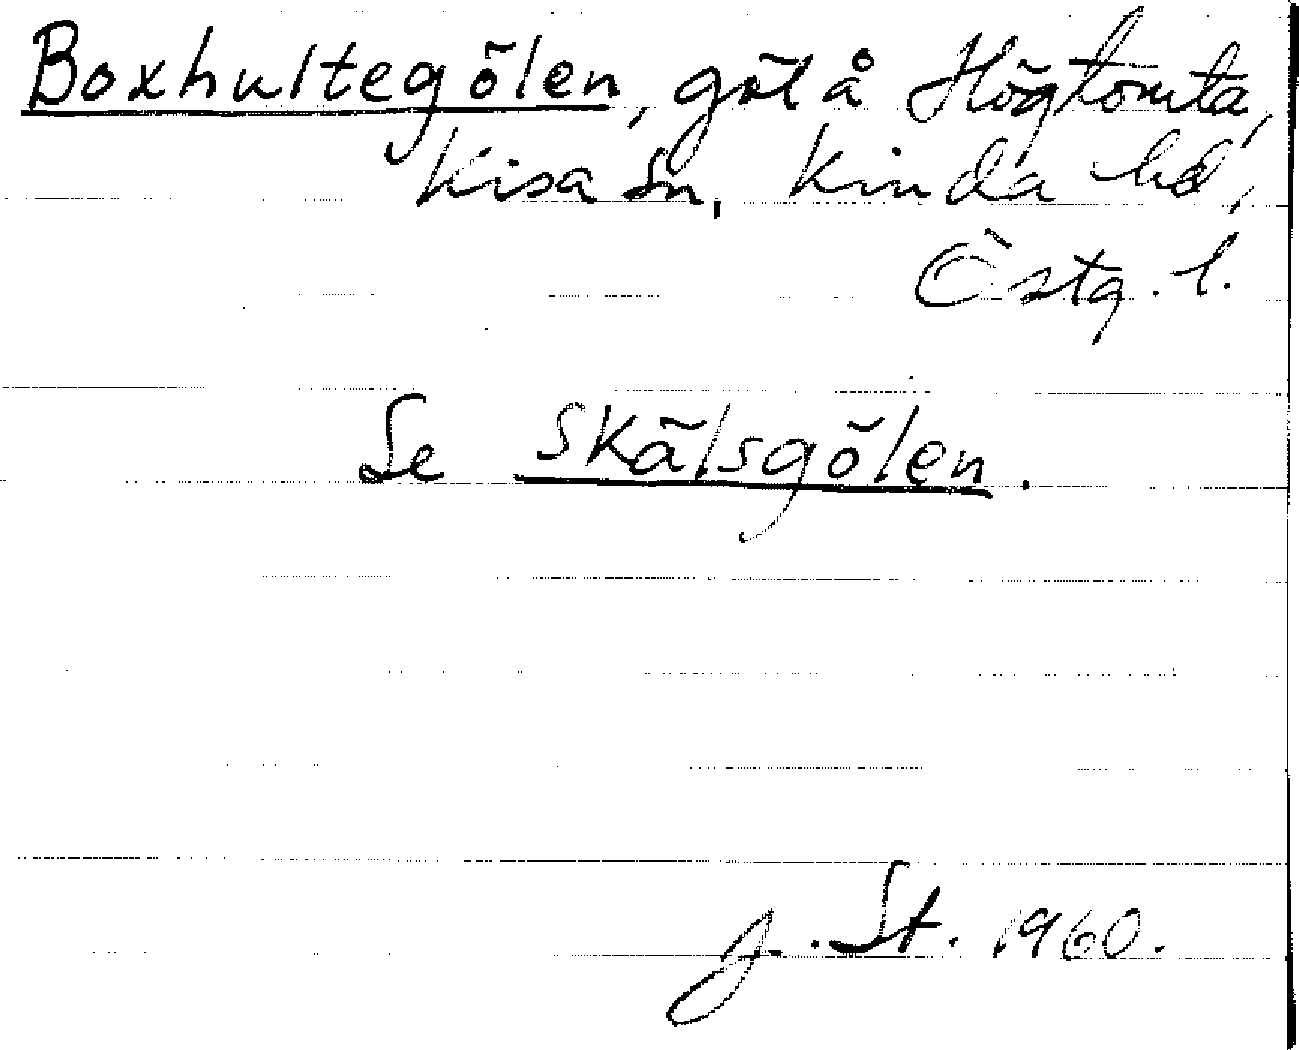 Boxhultegölen, göl å Högtomta,
Kisa sn, Kinda hd,
Östg. l.
Se Skälsgölen.
J. St. 1960.